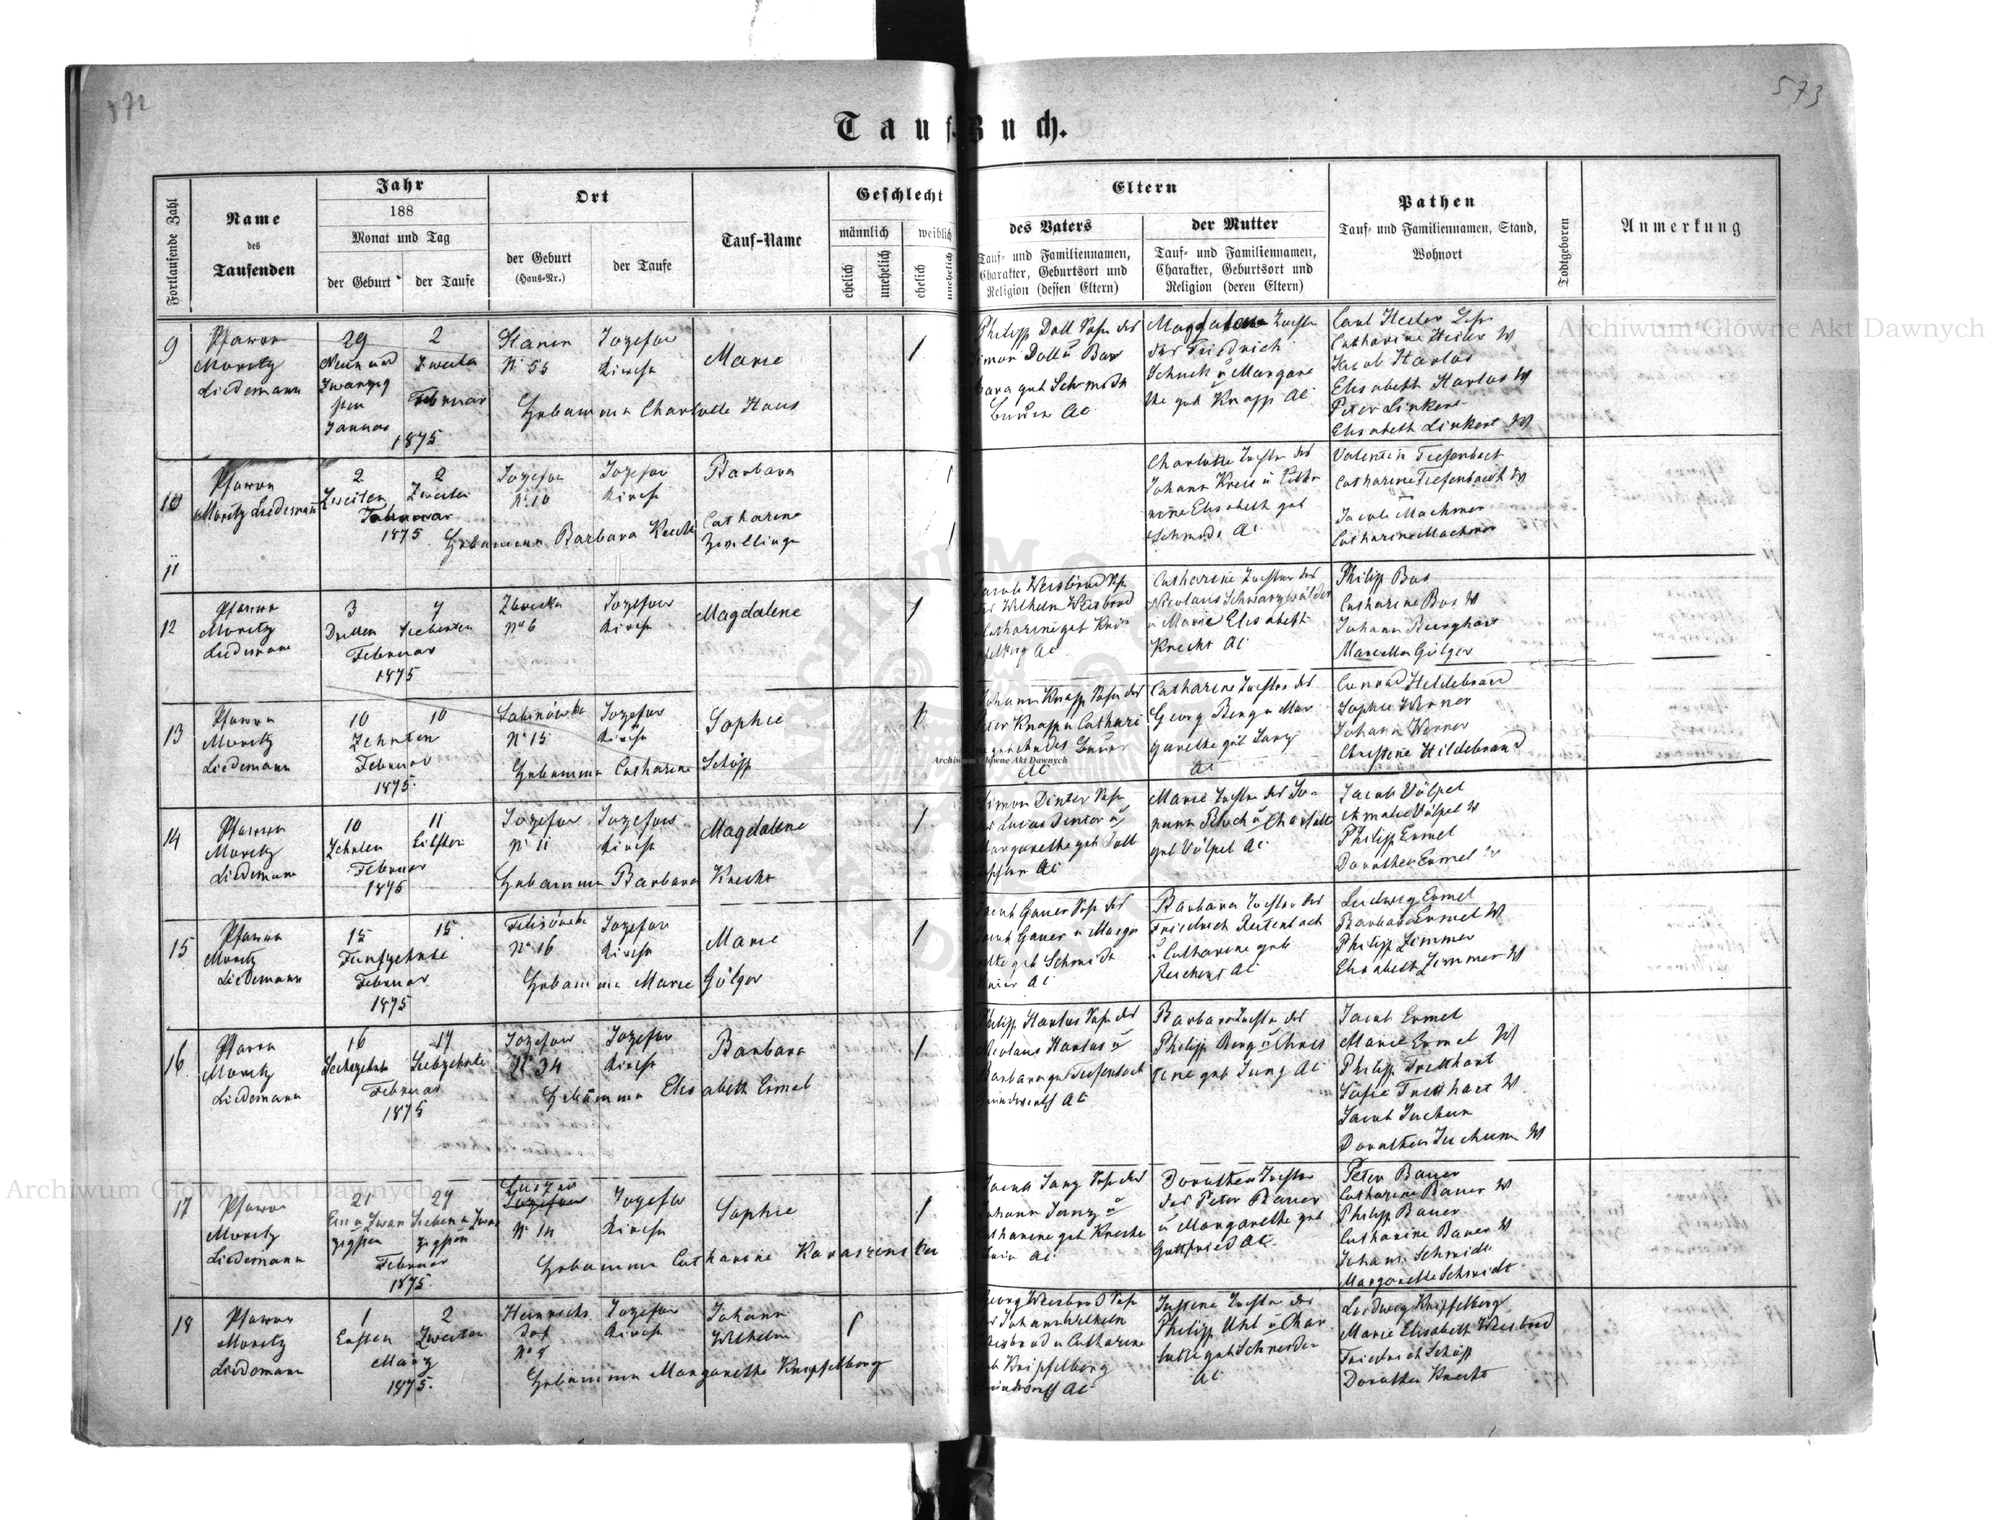 573
Tauf-Buch.
Fortlaufende Zahl
Name
des
Taufenden
Jahr
188
Monat und Tag
der Geburt
der Taufe
Ort
der Geburt
(Haus-Nr.)
der Taufe
Tauf-Name
Geschlecht
männlich
weiblich
ehelich
unehelich
ehelich
unehelich
Eltern
des Vaters
Tauf- und Familiennamen,
Charakter, Geburtsort und
Religion (dessen Eltern)
der Mutter
Tauf- und Familiennamen,
Charakter, Geburtsort und
Religion (deren Eltern)
Pathen
Tauf- und Familiennamen, Stand,
Wohnort
Todtgeboren
Anmerkung
9
Pfarrer
Moritz
Liedemann
29
Januar
2
Zweiten
Februar
1875
No 55
Jozefow
Kirche
Marie
Hebamme Charlotte Haus
1
Philipp Doll Sohn des
Simon Doll u Bar
bara geb Schmidt
AC
Magdalene Tochter
des Friedrich
Schuck u Margare
the geb Knapp AC
Carl Heiler
Catharine Heiler W
Jacob Harlos
Elisabeth Harlos W
Peter Linkert
Elisabeth Linkert W
10
Pfarrer
Moritz Liedemann
2
Zweiten
2
Zweiten
Februar
1875
Jozefow
No 10
Jozefow
Kirche
Barbara
Catharine
Zwillinge
Hebamme Barbara Knecht
1
1
Charlotte Tochter des
Johann Kreis u Catha
rine Elisabeth geb
Schmidt AC
Valentin Tiefenbach
Catharine Tiefenbach W
Jacob Machmer
Catharine Machmer
11
12
Pfarrer
Moritz
Liedemann
3
Dritten
7
Siebenten
Februar
1875
No 6
Jozefow
Kirche
Magdalene
1
Jacob Weisbrod Sohn
des Wilhelm Weisbrod
u Catharine geb
AC
Catharine Tochter des
Nicolaus Schwarzwälder
u Marie Elisabeth
Knecht AC
Philipp Bas
Catharine Bas W
Johann Burghart
Marcella Gölger
13
Pfarrer
Moritz
Liedemann
10
10
Zehnten
Februar
1875
Sabinówka
No 15
Jozefow
Kirche
Sophie
Hebamme Catharine Schöpp
1
Johann Knapp Sohn des
Peter Knapp u Cathari
AC
Catharine Tochter des
Georg Berg u Mar
garethe geb Janz
AC
Conrad Hildebrand
Sophie Werner
Johann Werner
Christine Hildebrand
14
Pfarrer
Moritz
Liedemann
10
Zehnten
11
Eilften
Februar
1875
Jozefow
No 11
Jozefow
Kirche
Magdalene
Hebamme Barbara Knecht
1
Simon Dinter Sohn
Margarethe geb
AC
Marie Tochter des Jo-
hann u Charlotte
geb Völpel AC
Jacob Völpel
Amalie Völpel W
Philipp Ermel
Dorothea Ermel W
15
Pfarrer
Moritz
Liedemann
15
15
Fünfzehnte
Februar
1875
Felizówka
No 16
Jozefow
Kirche
Marie
Hebamme Marie Gölger
1
Jacob Gauer Sohn des
Jacob Gauer u Marga
rethe geb Schmidt
AC
Barbara Tochter des
Friedrich Reitenbach
u Catharine geb
Reichert AC
Ludwig Ermel
Barbara Ermel W
Philipp Zimmer
Elisabeth Zimmer W
16
Pfarrer
Moritz
Liedemann
16
Sechzehnte
17
Siebzehnte
Februar
1875
Jozefow
No 34
Jozefow
Kirche
Barbara
Hebamme Elisabeth Ermel
1
Philipp Harlos Sohn des
Nicolaus Harlos u
Barbara geb Tiefenbach
AC
Barbara Tochter des
Philipp Berg u Chris
tine geb Jung AC
Jacob Ermel
Marie Ermel W
Philipp Tretthart
Sofie Tretthart W
Jacob Juchum
Dorothea Juchum W
17
Pfarrer
Moritz
Liedemann
21
Ein u Zwan
zigsten
27
Sieben u Zwan
zigsten
Februar
1875
No 14
Jozefow
Kirche
Sophie
Hebamme Catharine
1
Jacob Janz Sohn des
Johann Janz u
Catharine geb
AC
Dorothea Tochter
des Peter Bauer
u Margarethe geb
Gottfried AC
Peter Bauer
Catharine Bauer W
Philipp Bauer
Catharine Bauer W
Johann Schmidt
Margarethe Schmidt
18
Pfarrer
Moritz
Liedemann
1
Ersten
2
Zweiten
März
1875
Heinrichs
dorf
Jozefow
Kirche
Johann
Wilhelm
Hebamme Margarethe Knipfelberg
1
Georg Weisbrod Sohn
des Johann Wilhelm
Weisbrod u Catharine
geb Knipfelberg
AC
Justine Tochter des
Philipp Uhl u Char
lotte geb Schneider
AC
Ludwig Knipfelberg
Marie Elisabeth Weisbrod
Friedrich Schöpp
Dorothea Knecht
Archiwum Główne Akt Dawnych
Archiwum Główne Akt Dawnych
Archiwum Główne Akt Dawnych